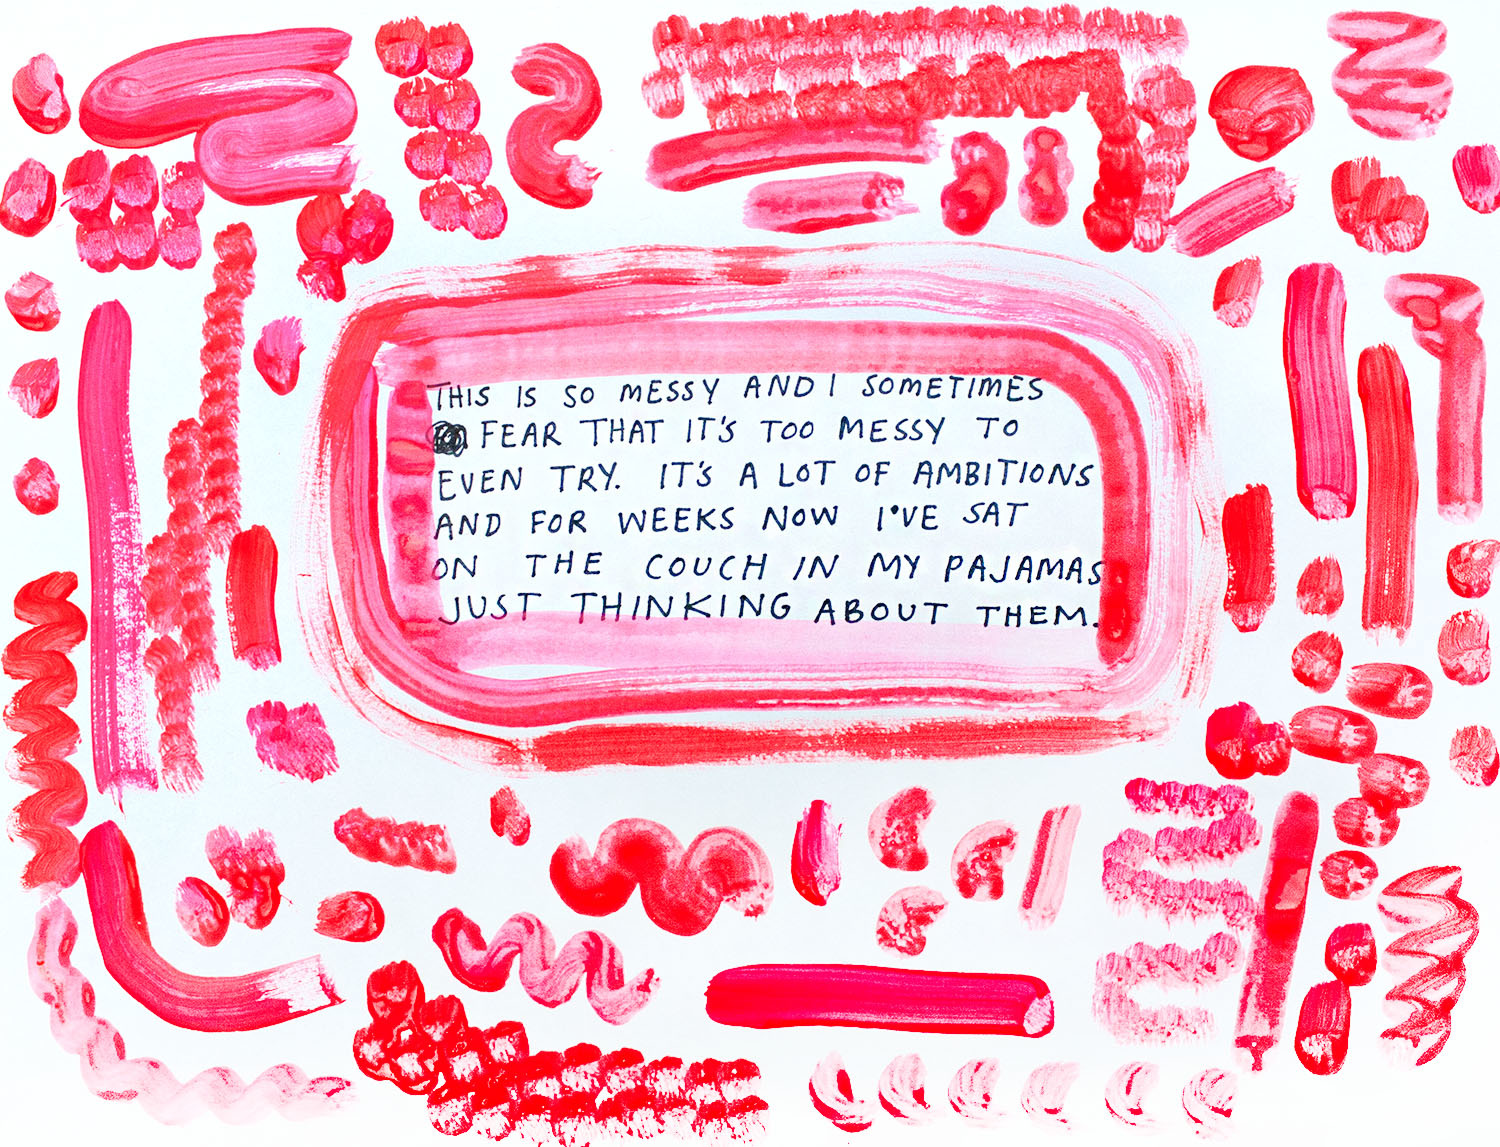 THIS IS SO MESSY AND I SOMETIMES
FEAR THAT IT'S TOO MESSY TO
EVEN TRY. IT'S A LOT OF AMBITIONS
AND FOR WEEKS NOW I'VE SAT
ON THE COUCH IN MY PAJAMAS
JUST THINKING ABOUT THEM.